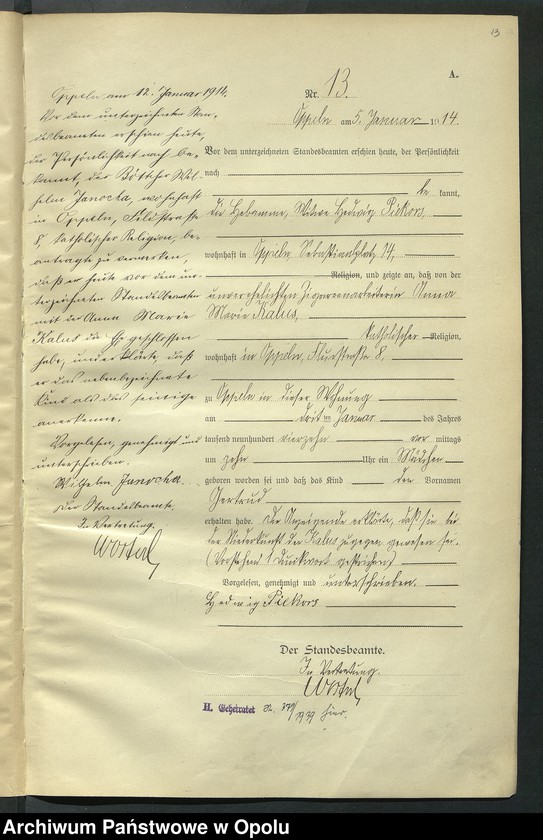 13
A.
Nr. 13.
Oppeln am 5. Januar 1914.
Vor dem unterzeichneten Standesbeamten erschien heute, der Persönlichkeit
nach
be kannt,
die Hebamme, Witwe Hedwig Piekors,
wohnhaft in Oppeln Sebastiansplatz 14,
Religion, und zeigte an, daß von der
unverehelichten Zigarrenarbeiterin Anna
Marie Kalus,
katholischer Religion,
wohnhaft in Oppeln, Flurstraße 8,
zu Oppeln in dieser Wohnung
am dritten Januar des Jahres
tausend neunhundert vierzehn vor mittags
um zehn Uhr ein Mädchen
geboren worden sei und daß das Kind den Vornamen
Gertrud
erhalten habe. Die Anzeigende erklärte, daß sie bei
der Niederkunft der Kalus zugegen gewesen sei.
(Vorstehend 1 Druckwort gestrichen)
Vorgelesen, genehmigt und unterschrieben.
Hedwig Piekors
Der Standesbeamte.
In Vertretung.
H. Geheiratet
hier.
Oppeln am 12. Januar 1914.
Vor dem unterzeichneten Stan-
desbeamten erschien heute,
der Persönlichkeit nach be-
kannt, der Böttcher Wil-
helm Janocha, wohnhaft
in Oppeln,
8, katholischer Religion, be-
antragte zu vermerken,
daß er heute vor dem un-
terzeichneten Standesbeamten
mit der Anna Marie
Kalus die Ehe geschlossen
habe, und erklärte, daß
er das nebenbezeichnete
Kind als das seinige
anerkenne.
Vorgelesen, genehmigt und
unterschrieben.
Wilhelm Janocha.
Der Standesbeamte.
In Vertretung.
Archiwum Państwowe w Opolu